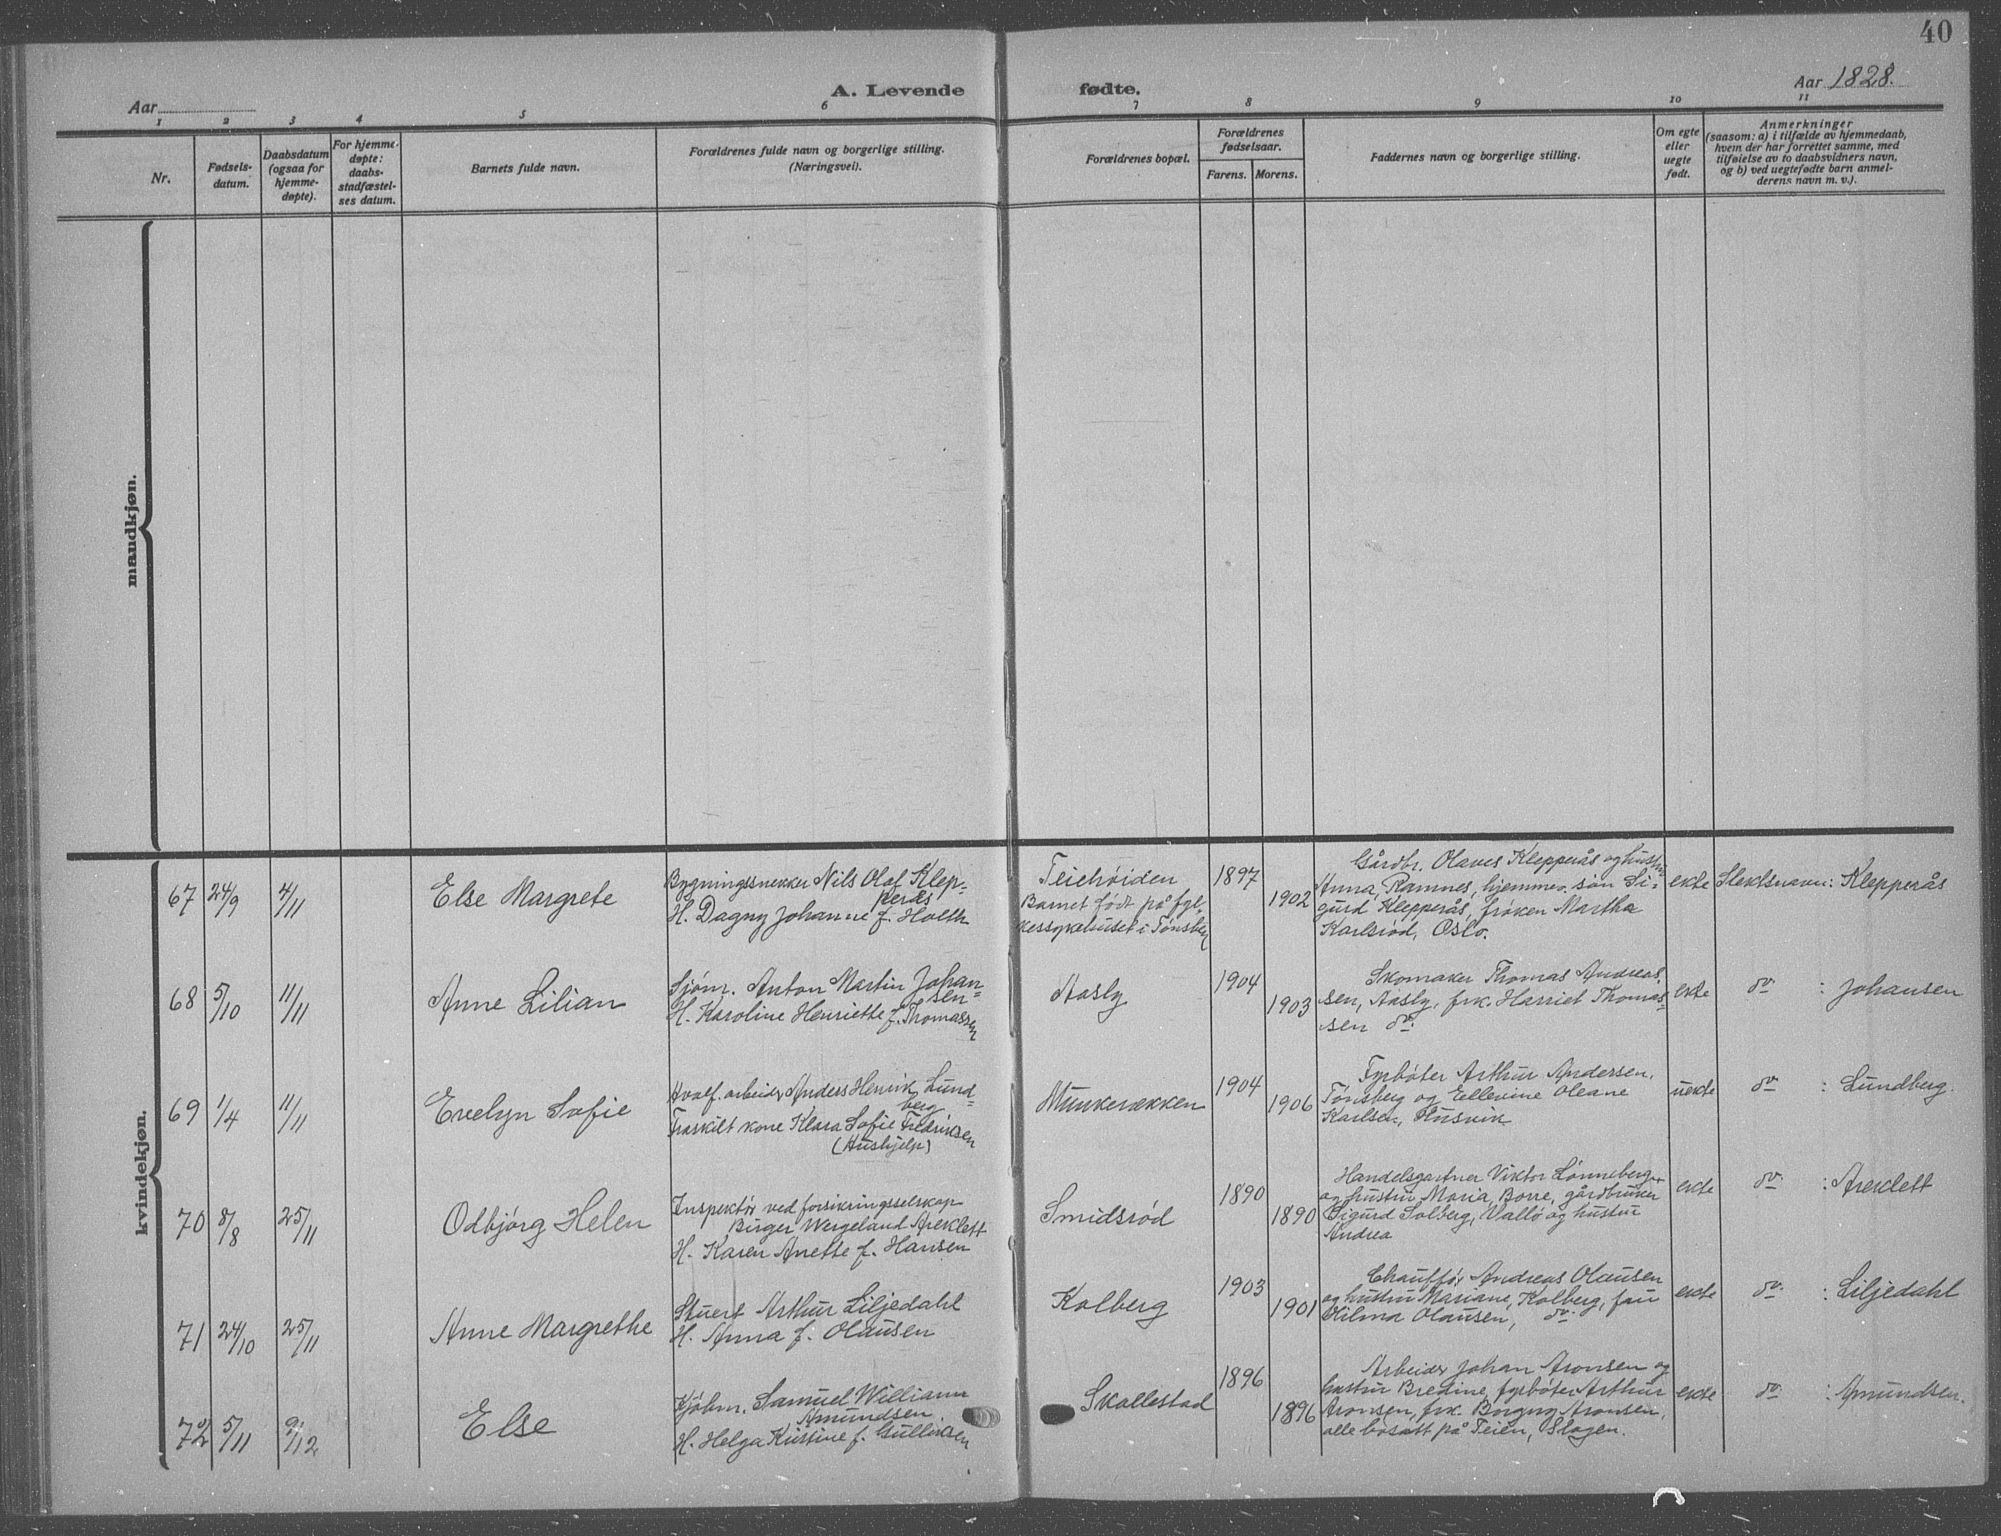 40
Aar
A. Levende
fødte.
Aar 1828.
1 2 3 4 5 6 7 8 9 10 11
Nr.
Fødsels-
datum.
Daabsdatum
(ogsaa for
hjemme-
døpte).
For hjemme-
døpte:
daabs-
stadfæstel-
ses datum.
Barnets fulde navn.
Forældrenes fulde navn og borgerlige stilling.
(Næringsvei).
Forældrenes bopæl.
Forældrenes
fødselsaar.
Farens. Morens.
Faddernes navn og borgerlige stilling.
Om egte
eller
uegte
født.
Anmerkninger
(saasom: a) i tilfælde av hjemmedaab,
hvem der har forrettet samme, med
tilføielse av to daabsvidners navn,
og b) ved uegtefødte barn anmel-
derens navn m. v.).
mandkjøn.
kvindekjøn.
67 24/9 4/11
Else Margrete
Bygningssnekker Nils Olaf Klep-
perås
H. Dagny Johanne f. Holth
Teiehöiden
Barnet født på fyl-
kessykehuset i Tønsberg
1897
1902
Gårdbr. Olaves Klepperås og hustru
Anna, Ramnes, hjemmev. søn Si-
gurd Klepperås, frøken Martha
Karlsrød, Oslo.
ekte
Slektsnavn: Klepperås
68 5/10 11/11
Anne Lilian
Sjøm. Anton Martin Johan-
sen
H. Karoline Henriette f. Thomassen
Aasly
1904
1903
Skomaker Thomas Andreas-
sen, Aasly, frk. Harriet Thomas-
sen do.
ekte
do : Johansen
69 1/4 11/11
Evelyn Sofie
Hvalf. arbeider Anders Henrik Lund-
berg
Fraskilt kone Klara Sofie Fredriksen
(Hushjelp)
Munkerekken
1904
1906
Fyrbøter Arthur Andersen,
Tønsberg og Ellevine Oleane
Karlsen, Husvik
uekte
do : Lundberg.
70 8/8 25/11
Odbjörg Helen
Inspektör ved forsikringsselskap
Birger Wergeland Areklett
H. Karen Anette f. Hansen
Smidsrød
1890
1890
Handelsgartner Viktor Lönneberg
og hustru Maria, Borre, gårdbruker
Sigurd Solberg, Vallö og hustru
Andrea
ekte
do : Areklett
71 24/10 25/11
Anne Margrethe
Stuert Arthur Liljedahl
H. Anna f. Olausen
Kolberg
1903
1901
Chauffør Andreas Olausen
og hustru Mariane, Kolberg, fru
Vilma Olausen, do.
ekte
do : Liljedahl
72 5/11 9/12
Else
Kjöbm. Samuel William
Amundsen.
H. Helga Kristine f. Gulliksen
Skallestad
1896
1896
Arbeider Johan Aronsen og
hustru Bredine, fyrbøter Arthur
Aronsen, frk. Borgny Aronsen,
alle bosatt på Teien, Slagen.
ekte
do : Amundsen.